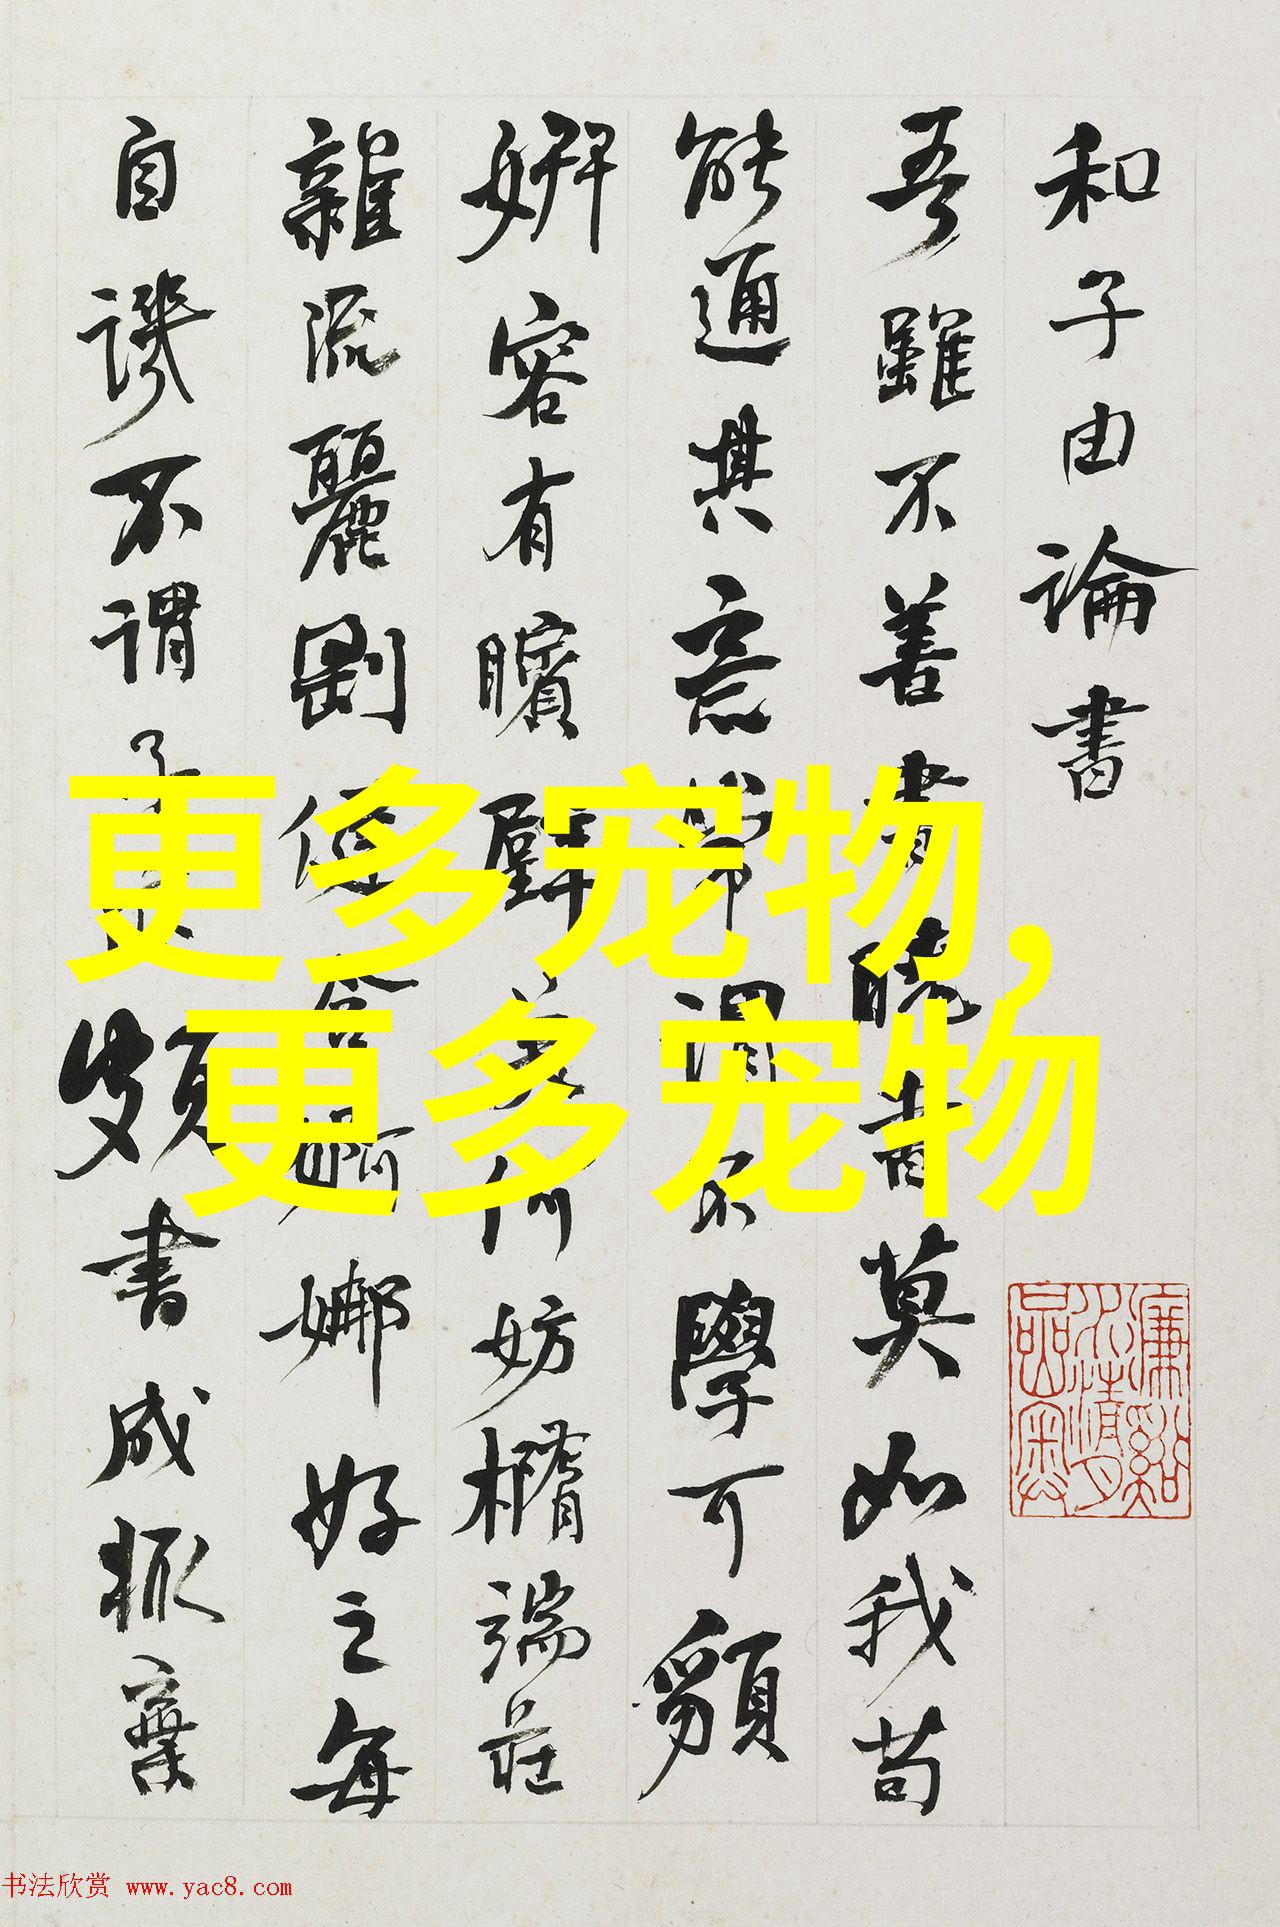 和子由論書
吾雖不善書曉書莫如我苟
能通其意常謂不學可䫉
妍容有矉璧美何妨橢端莊
雜流麗剛健含婀娜好之每
自譏不謂子亦頗書成輒棄
更多宠物,
更多宠物
书法欣赏 www.yac8.com